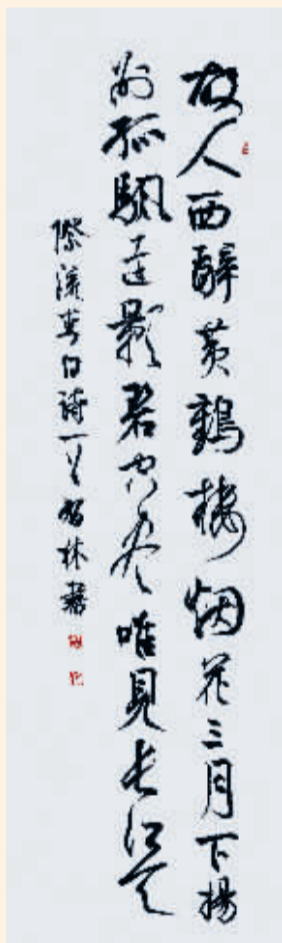 故人西辭黄鶴樓烟花三月下揚
州孤颿遠影碧空尽唯見長江天
際流李白詩一首林書